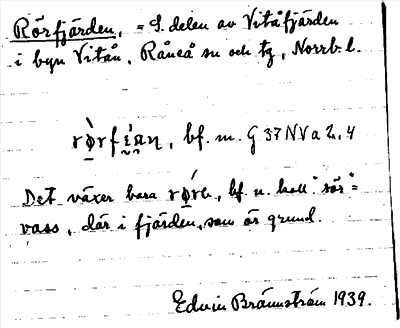 Rörfjärden, = S. delen av Vitåfjärden
i byn Vitån, Råneå sn och tg, Norrb. l.
bf. m. G 37 NV a 2, 4
Det växer bara bf. n. koll "rör"=
vass, där i fjärden, som är grund.
Edvin Brännström 1939.